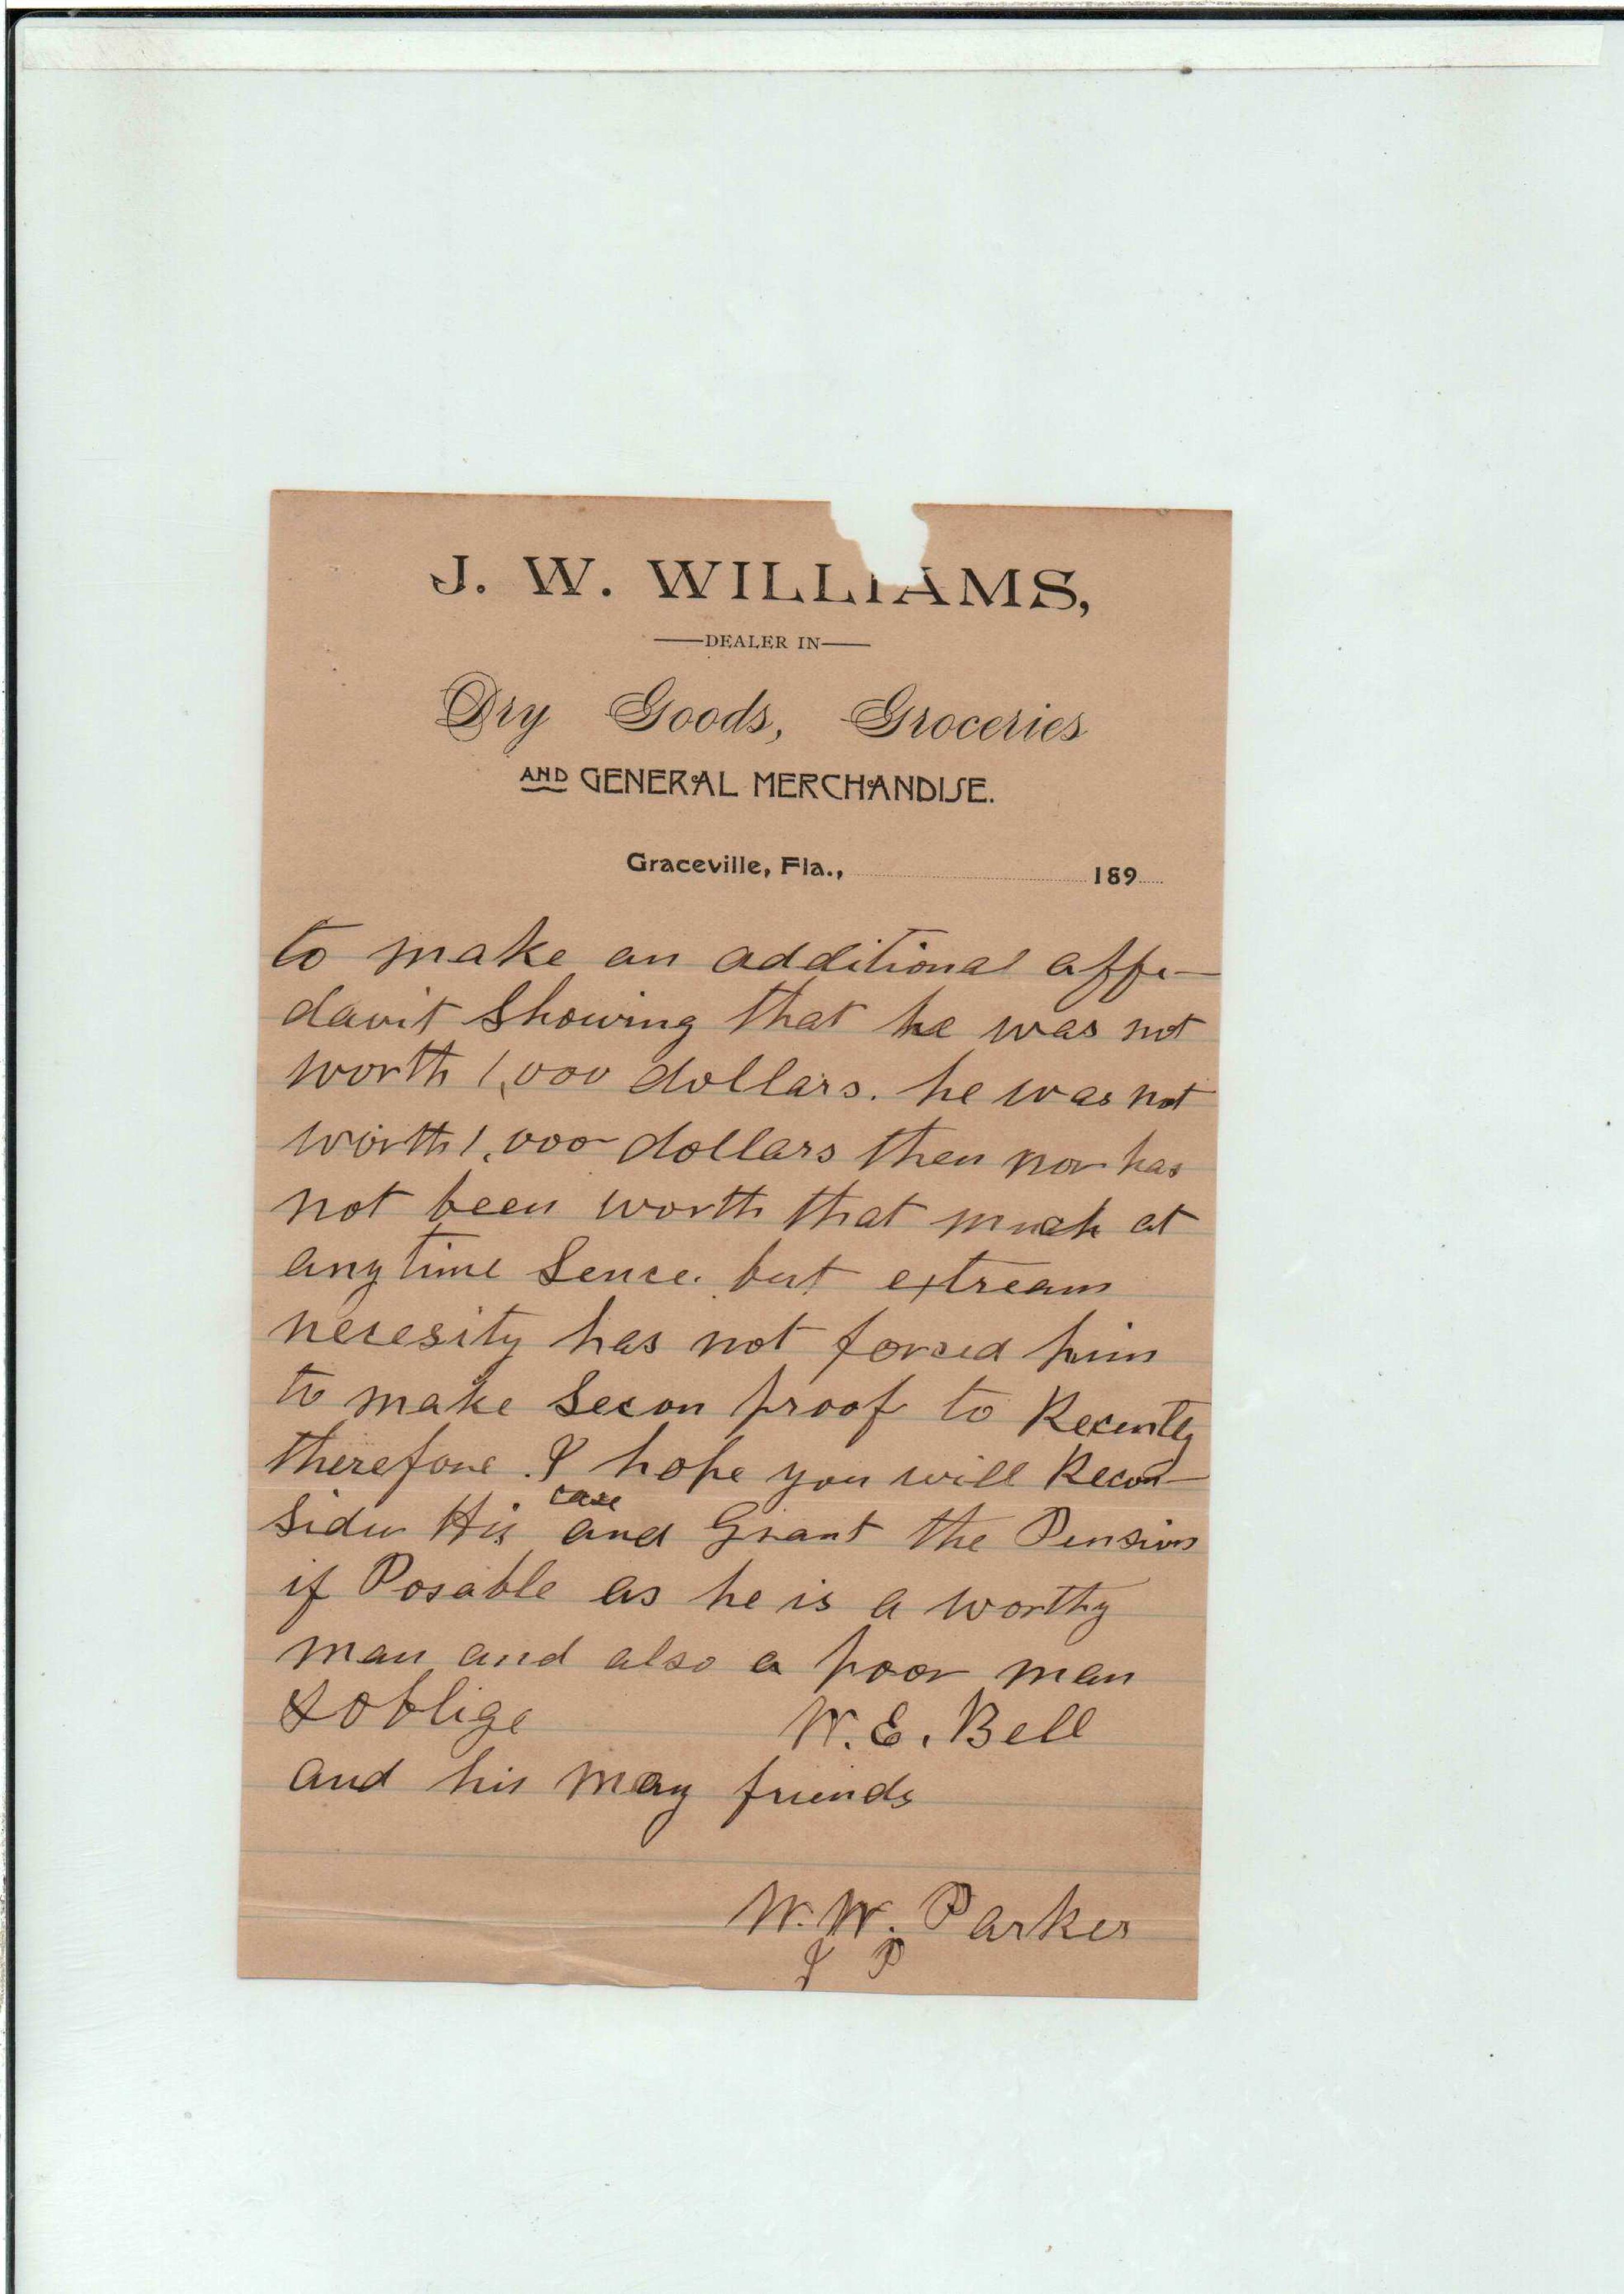 J. W. WILLIAMS,
DEALER IN
Dry Goods, Groceries
AND GENERAL MERCHANDISE.
Graceville, Fla., 189
to make an additional affi-
davit showing that he was not
worth 1,000 dollars. he was not
worth 1,000 dollars then nor has
not been worth that much at
any time Sence. but extream
necesity has not forced him
to make Secon proof to Recently
therefore. I hope you will Recon-
sider His case and Grant the Pension
if Posable as he is a worthy
man and also a poor man
& oblige W. E. Bell
and his many friends
W. W. Parker
J P